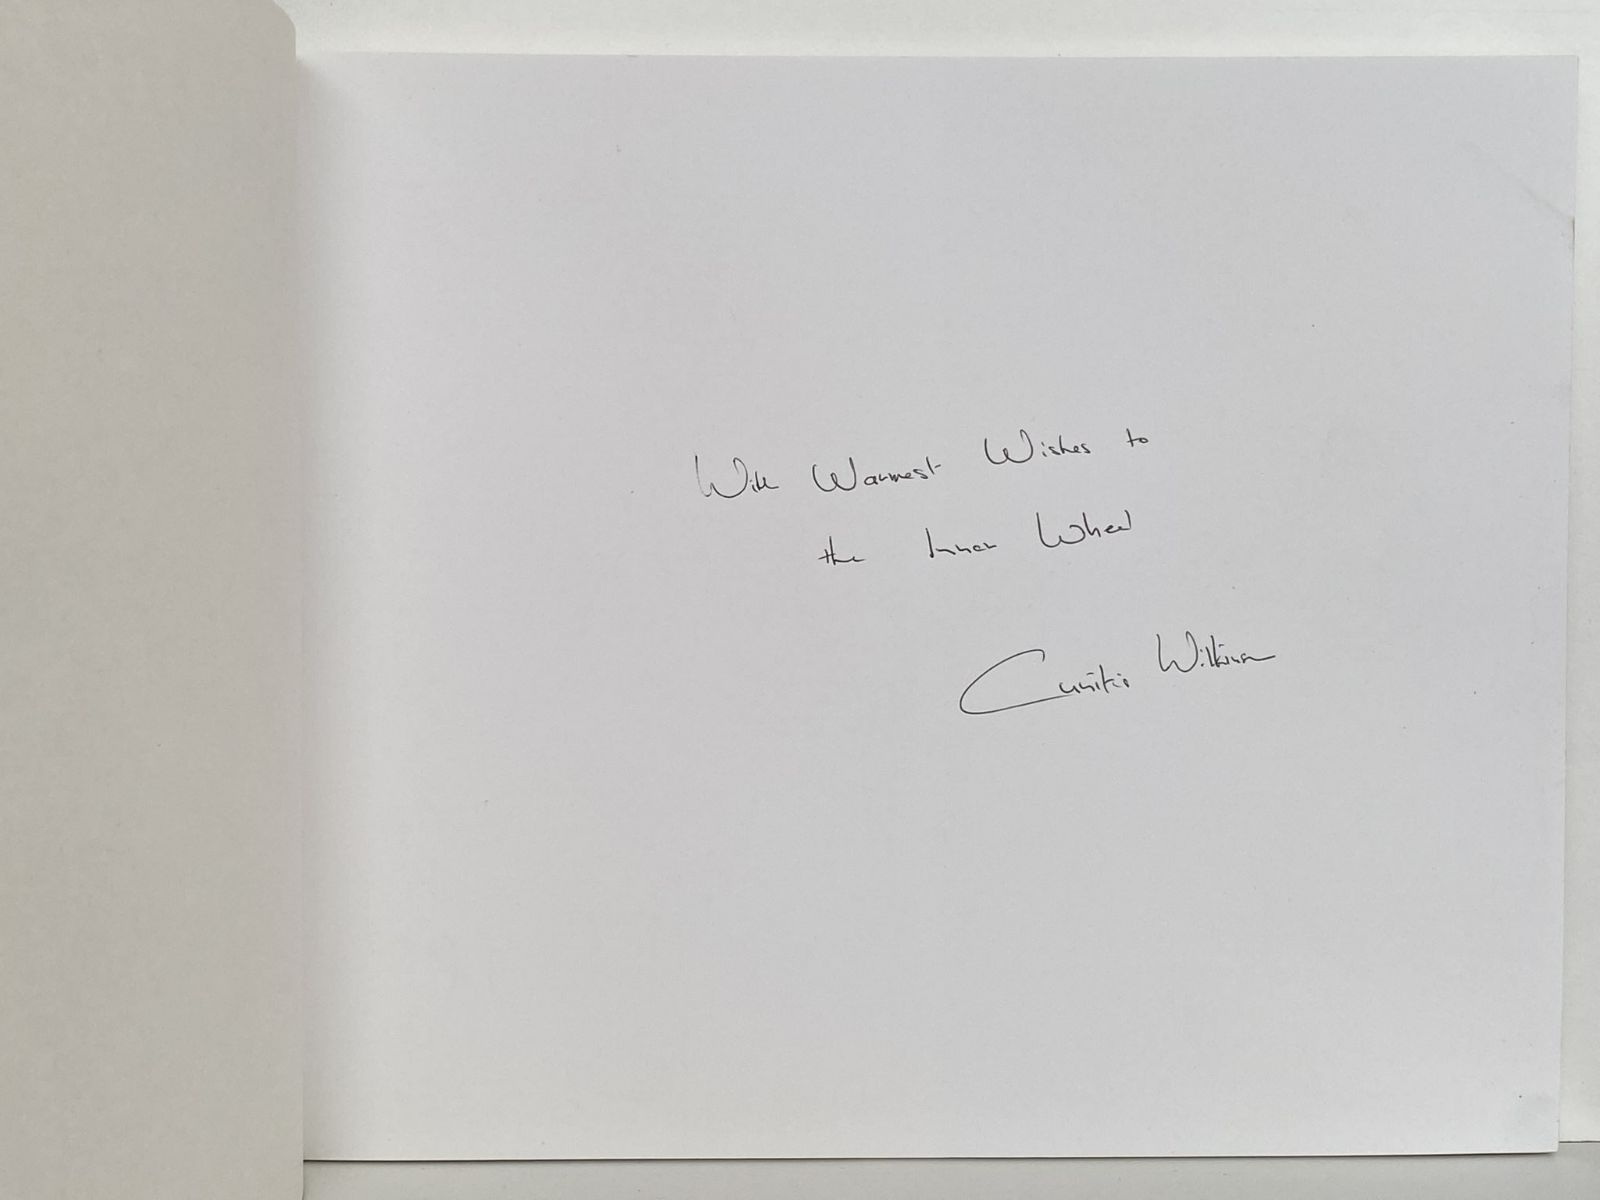 With Warmest Wishes to
the Inner Wheel
Wilkinson